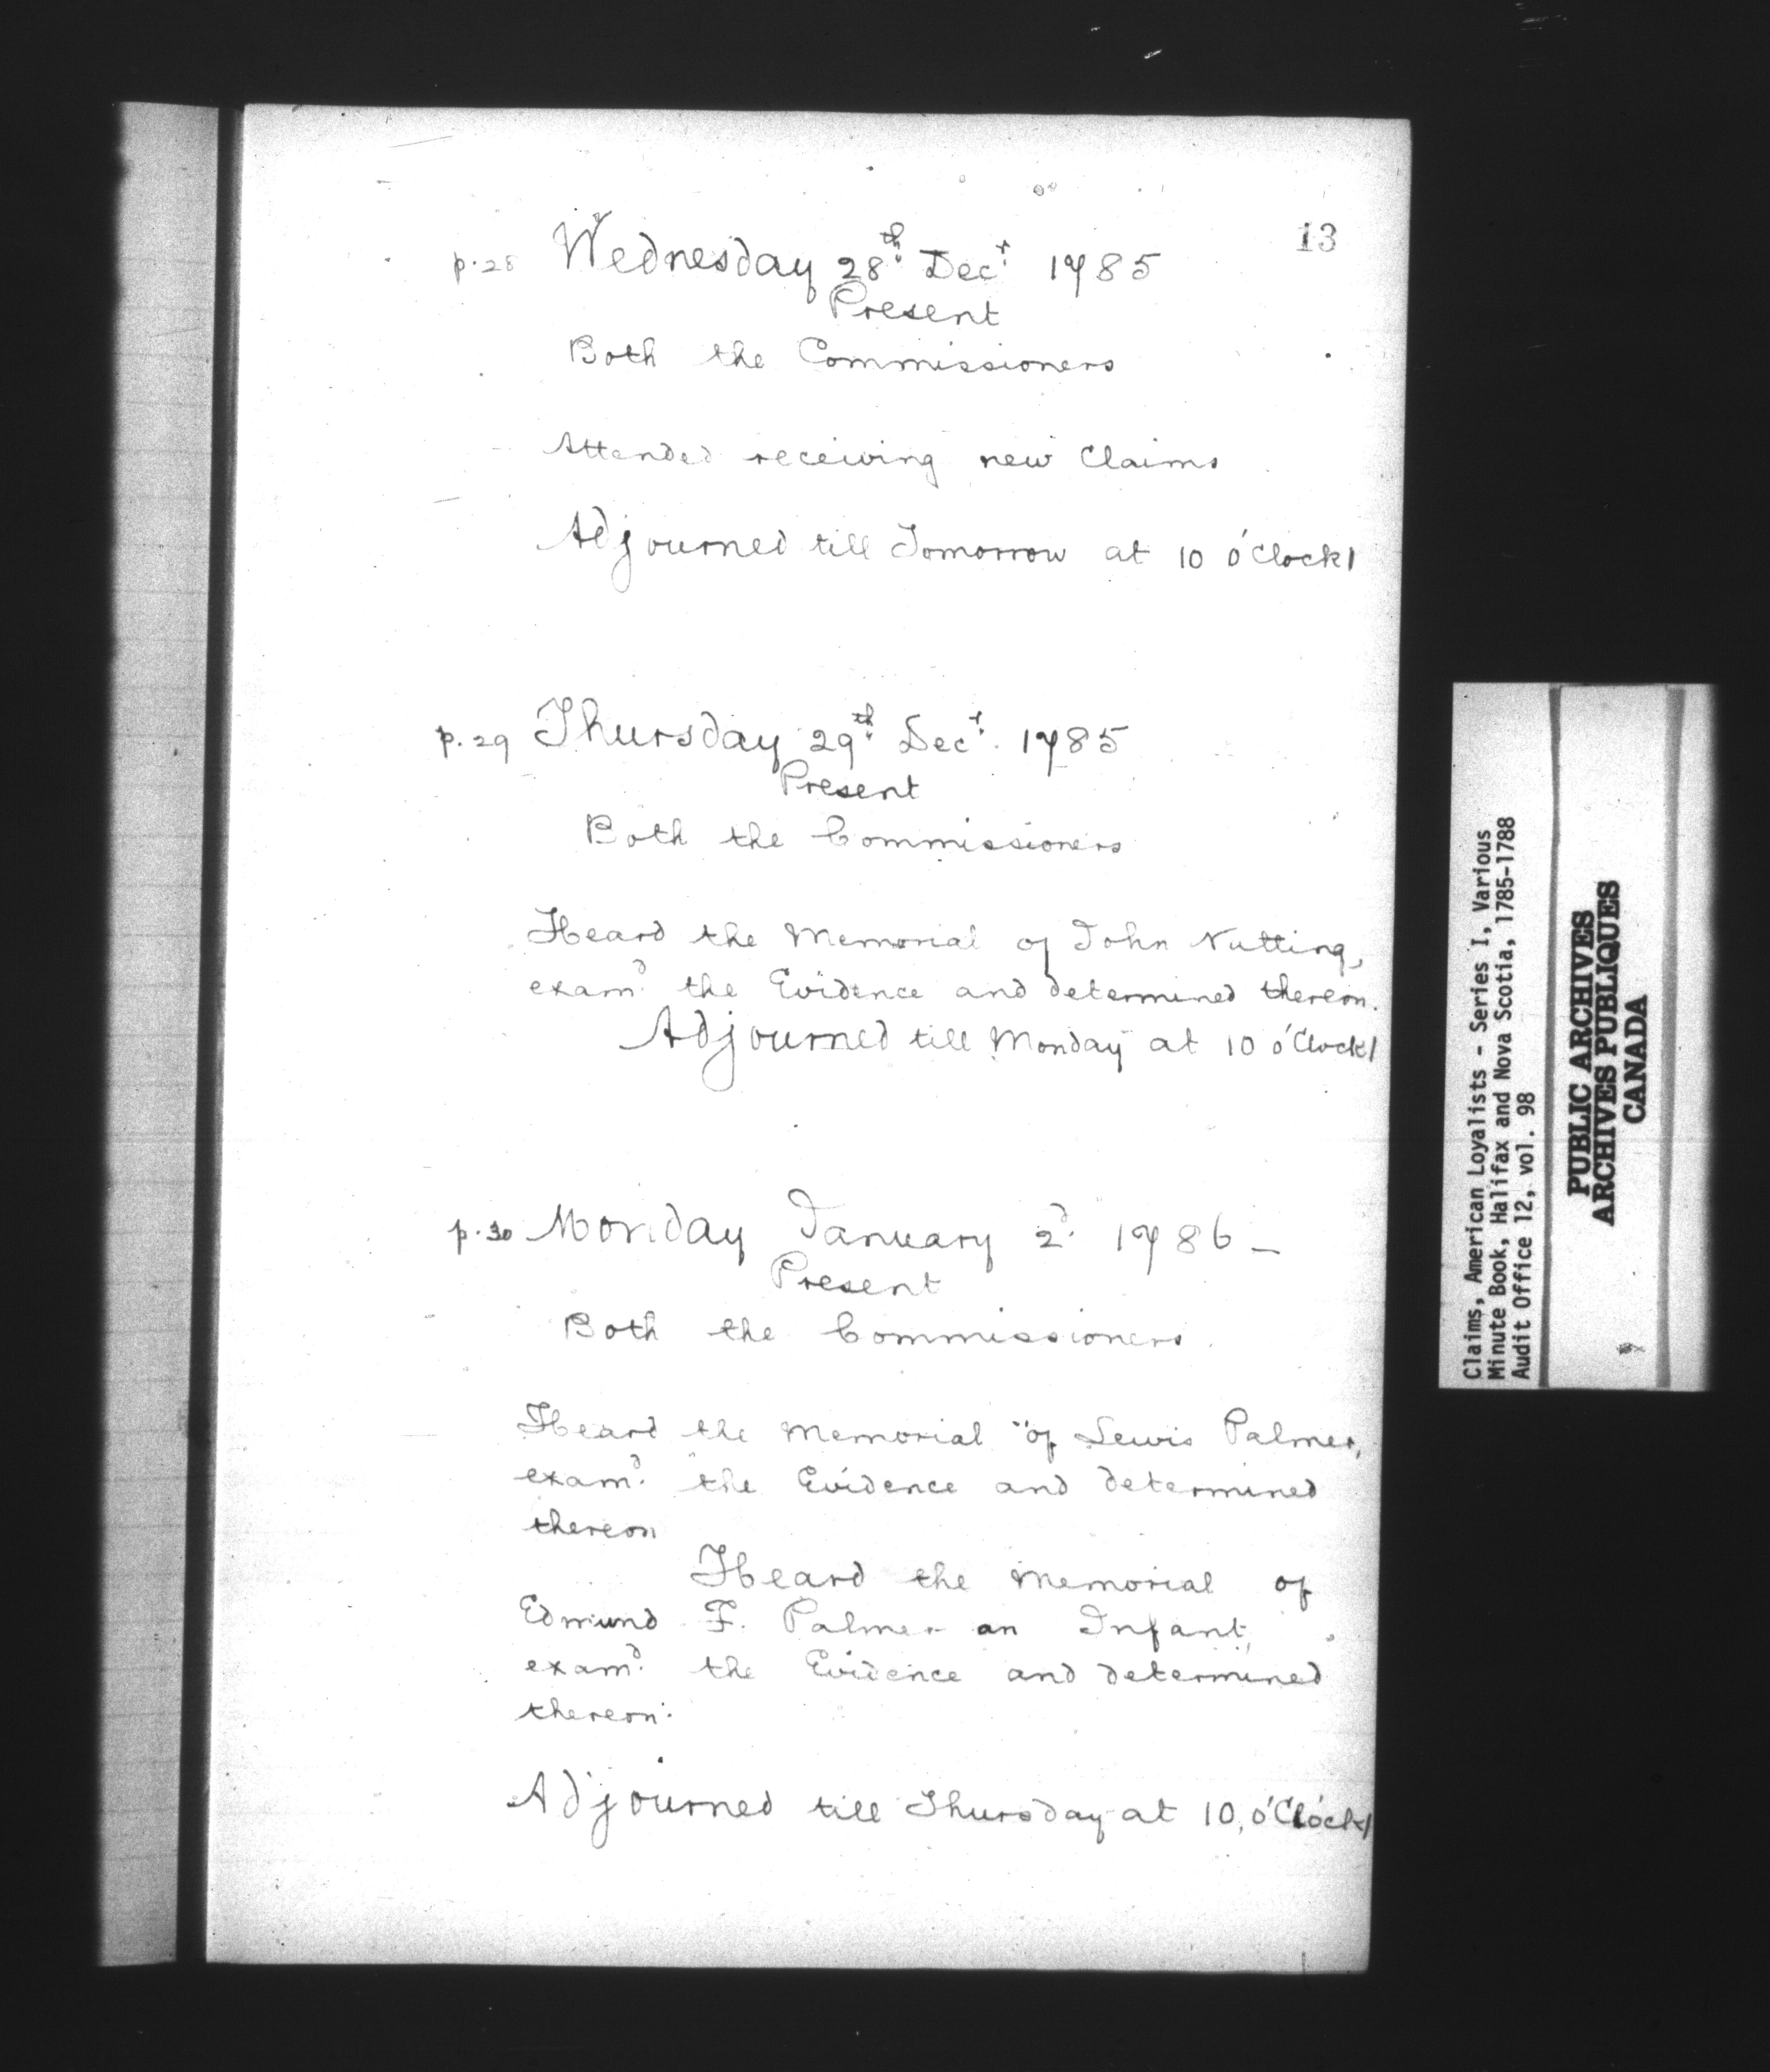 13
p.28 Wednesday 28th Decr 1785
Present
Both the Commissioners
Attended receiving new Claims
Adjourned till Tomorrow at 10 o'Clock/
p.29 Thursday 29th Decr. 1785
Present
Both the Commissioners
Heard the Memorial of John Nutting,
examd the Evidence and determined thereon.
Adjourned till Monday at 10 o'Clock/
p.30 Monday January 2d 1786 -
Present
Both the Commissioners.
Heard the Memorial of Lewis Palmer,
examd. the Evidence and determined
thereon
Heard the Memorial of
Edmund F. Palmer an Infant,
examd. the Evidence and determined
thereon.
Adjourned till Thursday at 10, o'Clock/
Claims, American Loyalists - Series I, Various
Minute Book, Halifax and Nova Scotia, 1785-1788
Audit Office 12, vol. 98
PUBLIC ARCHIVES
ARCHIVES PUBLIQUES
CANADA